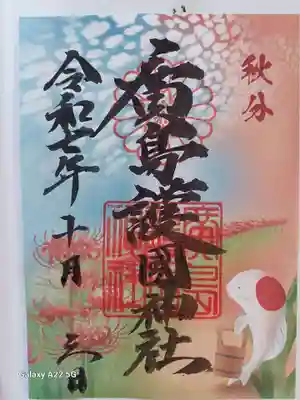 秋分
廣島護國神社
令和七年十月三日
廣島護國神社
Galaxy A22 5G